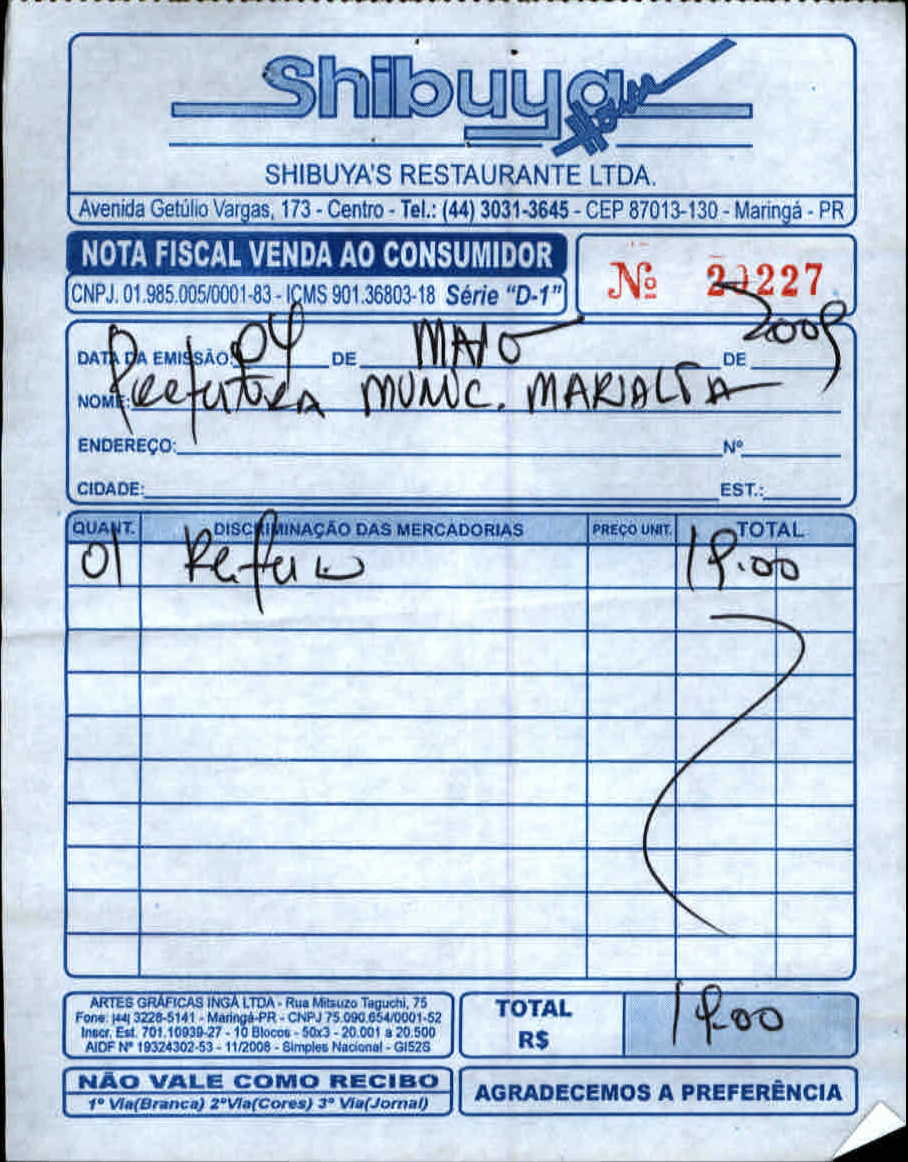 Shibuya
SHIBUYA'S RESTAURANTE LTDA.
Avenida Getúlio Vargas, 173 - Centro - Tel.: (44) 3031-3645 - CEP 87013-130 - Maringá - PR
NOTA FISCAL VENDA AO CONSUMIDOR
CNPJ. 01.985.005/0001-83 - ICMS 901.36803-18 Série "D-1"
Nº 20227
DATA DA EMISSÃO: 04 DE MAIO DE 2009
NOME: Prefeitura MUNIC. MARIALVA
ENDEREÇO: Nº
CIDADE: EST.:
QUANT. DISCRIMINAÇÃO DAS MERCADORIAS PREÇO UNIT. TOTAL
01 19.00
ARTES GRÁFICAS INGÁ LTDA - Rua Mitsuzo Taguchi, 75
Fone: (44) 3228-5141 - Maringá-PR - CNPJ 75.090.654/0001-52
Inscr. Est. 701.10939-27 - 10 Blocos - 50x3 - 20.001 a 20.500
AIDF Nº 19324302-53 - 11/2008 - Simples Nacional - GI52S
TOTAL
R$ 19.00
NÃO VALE COMO RECIBO
1º Via(Branca) 2ºVia(Cores) 3º Via(Jornal)
AGRADECEMOS A PREFERÊNCIA